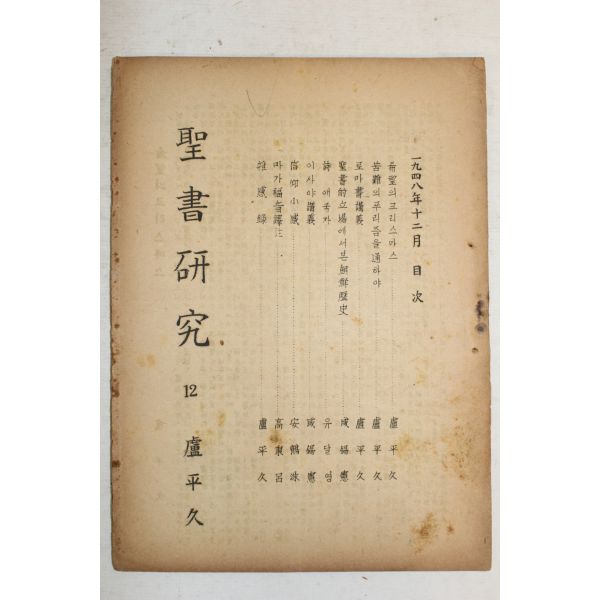 一九四八年十二月 目次
希望의크리스마스 盧平久
苦難의푸리즘을通하야 盧平久
로마書講義 盧平久
聖書的立場에서본朝鮮歷史 咸錫憲
詩 애국자 유달영
이사야講義 咸錫憲
信仰小感 安鶴洙
마가福音譯註
雜感錄 盧平久
聖書硏究
12
盧平久